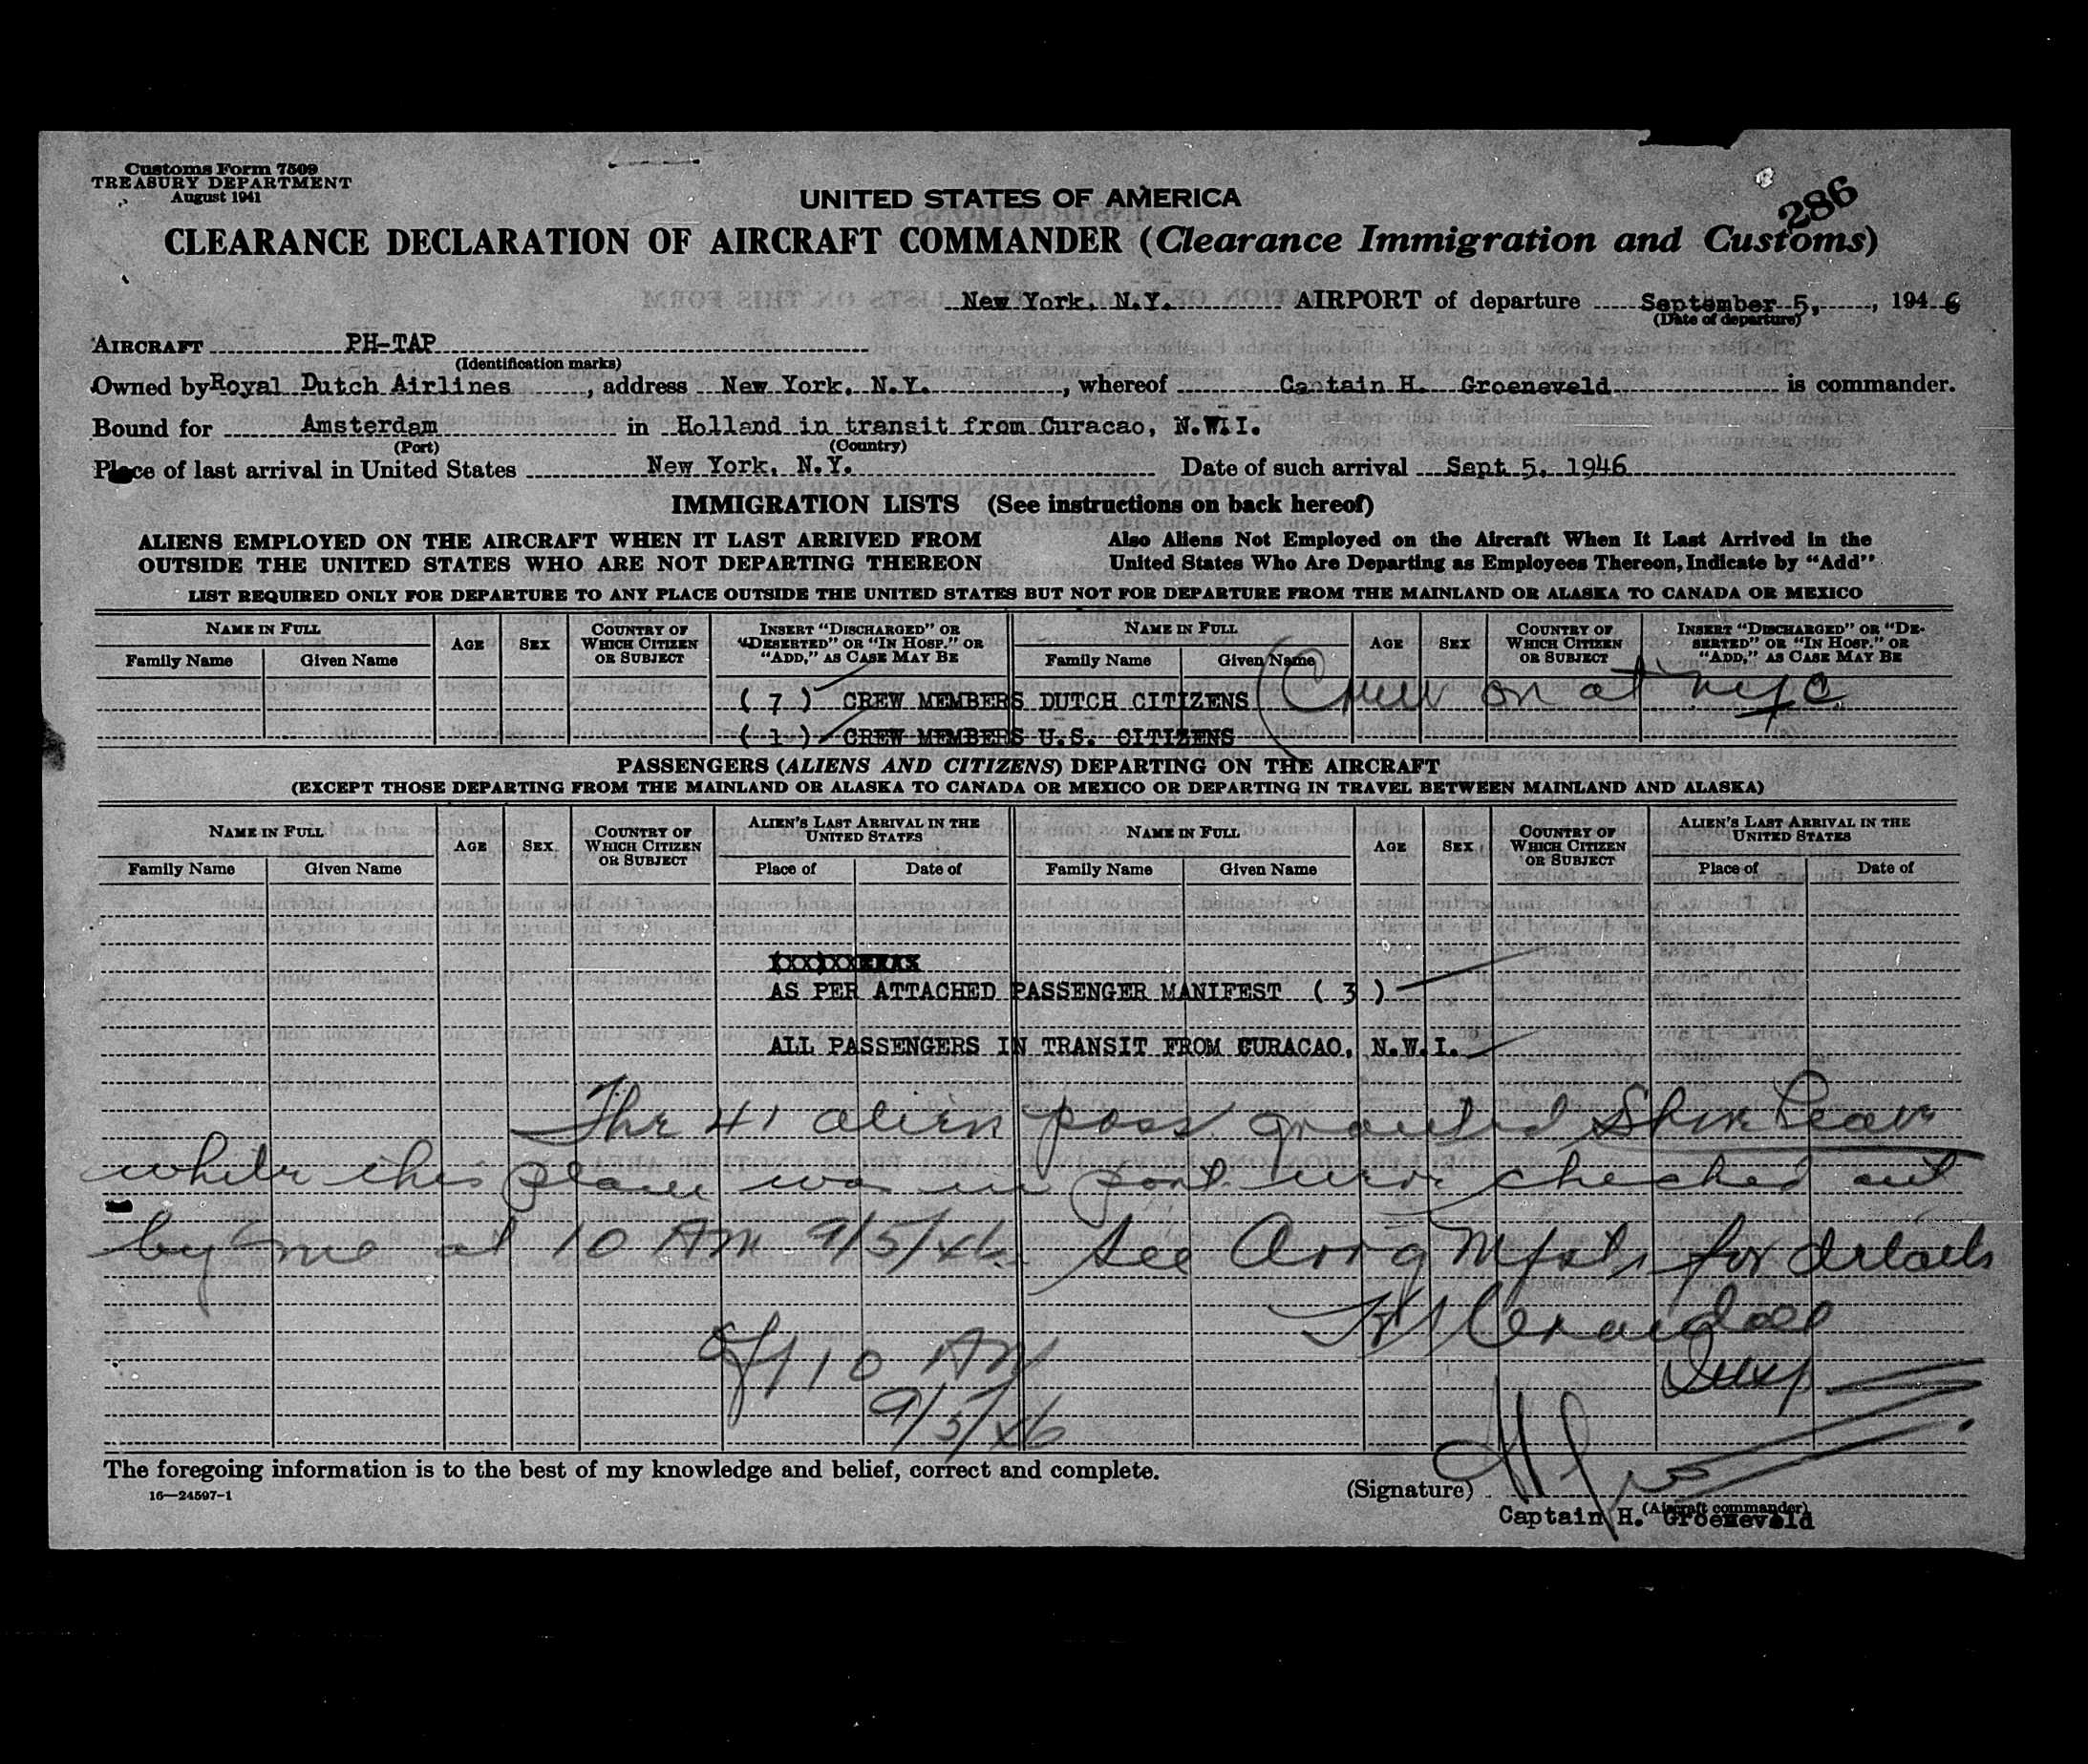 Customs Form 7509
TREASURY DEPARTMENT
August 1941
286
UNITED STATES OF AMERICA
CLEARANCE DECLARATION OF AIRCRAFT COMMANDER (Clearance Immigration and Customs)
New York, N.Y. AIRPORT of departure September 5, , 194 6
(Date of departure)
AIRCRAFT PH-TAP
(Identification marks)
Owned by Royal Dutch Airlines , address New York, N.Y. , whereof Captain H. Groeneveld is commander.
Bound for Amsterdam in Holland in transit from Curacao, N.W.I.
(Port) (Country)
Place of last arrival in United States New York, N.Y. Date of such arrival Sept 5, 1946
IMMIGRATION LISTS (See instructions on back hereof)
ALIENS EMPLOYED ON THE AIRCRAFT WHEN IT LAST ARRIVED FROM Also Aliens Not Employed on the Aircraft When It Last Arrived in the
OUTSIDE THE UNITED STATES WHO ARE NOT DEPARTING THEREON United States Who Are Departing as Employees Thereon, Indicate by "Add"
LIST REQUIRED ONLY FOR DEPARTURE TO ANY PLACE OUTSIDE THE UNITED STATES BUT NOT FOR DEPARTURE FROM THE MAINLAND OR ALASKA TO CANADA OR MEXICO
NAME IN FULL AGE SEX COUNTRY OF WHICH CITIZEN OR SUBJECT INSERT "DISCHARGED" OR "DESERTED" OR "IN HOSP." OR "ADD," AS CASE MAY BE NAME IN FULL AGE SEX COUNTRY OF WHICH CITIZEN OR SUBJECT INSERT "DISCHARGED" OR "DESERTED" OR "IN HOSP." OR "ADD," AS CASE MAY BE
Family Name Given Name Family Name Given Name
( 7 ) CREW MEMBERS DUTCH CITIZENS Crew on at nyc
( 1 ) CREW MEMBERS U.S. CITIZENS
PASSENGERS (ALIENS AND CITIZENS) DEPARTING ON THE AIRCRAFT
(EXCEPT THOSE DEPARTING FROM THE MAINLAND OR ALASKA TO CANADA OR MEXICO OR DEPARTING IN TRAVEL BETWEEN MAINLAND AND ALASKA)
NAME IN FULL AGE SEX COUNTRY OF WHICH CITIZEN OR SUBJECT ALIEN'S LAST ARRIVAL IN THE UNITED STATES NAME IN FULL AGE SEX COUNTRY OF WHICH CITIZEN OR SUBJECT ALIEN'S LAST ARRIVAL IN THE UNITED STATES
Family Name Given Name Place of Date of Family Name Given Name Place of Date of
AS PER ATTACHED PASSENGER MANIFEST ( 3 )
ALL PASSENGERS IN TRANSIT FROM CURACAO, N.W.I.
The 41 alien pass. granted Shore Leave
while this plane was in port were checked out
by me at 10 AM 9/5/46. See Mfsts for details
10 AM
9/5/46
The foregoing information is to the best of my knowledge and belief, correct and complete.
16—24597-1
(Signature)
(Aircraft commander)
Captain H. Groeneveld